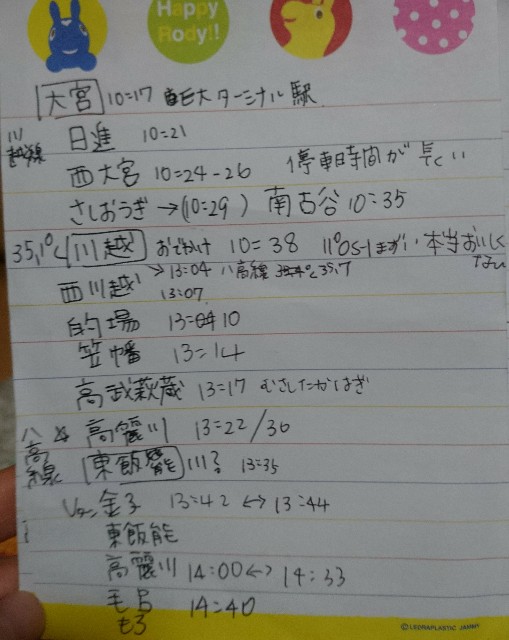 Happy
Rody!!
大宮 10=17 巨大ターミナル駅
川越線
日進 10=21
西大宮 10=24-26 停車時間が長くい
さしおうぎ→(10=29) 南古谷 10=35
35,1°C 川越 おでかけ 10=38 まずい 本当おいしく
ない
→13=04 八高線 35,7
西川越 13=07
的場 13= 10
笠幡 13=14
高武萩蔵 13=17 むさしたかはぎ
八高線
高麗川 13=22/30
東飯能 13=35
金子 13=42 ↔ 13=44
東飯能
高麗川 14=00 ↔ 14=33
毛呂 14=40
もろ
©LEDRAPLASTIC JAMMY